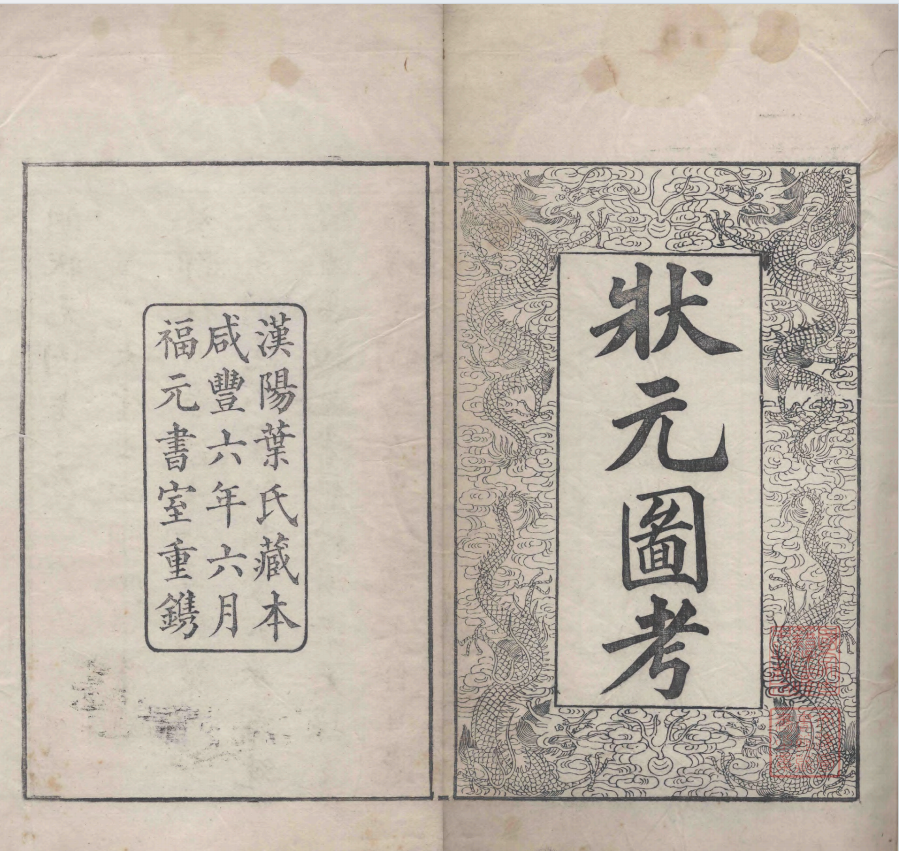 狀元圖考
漢陽葉氏藏本
咸豐六年六月
福元書室重鐫